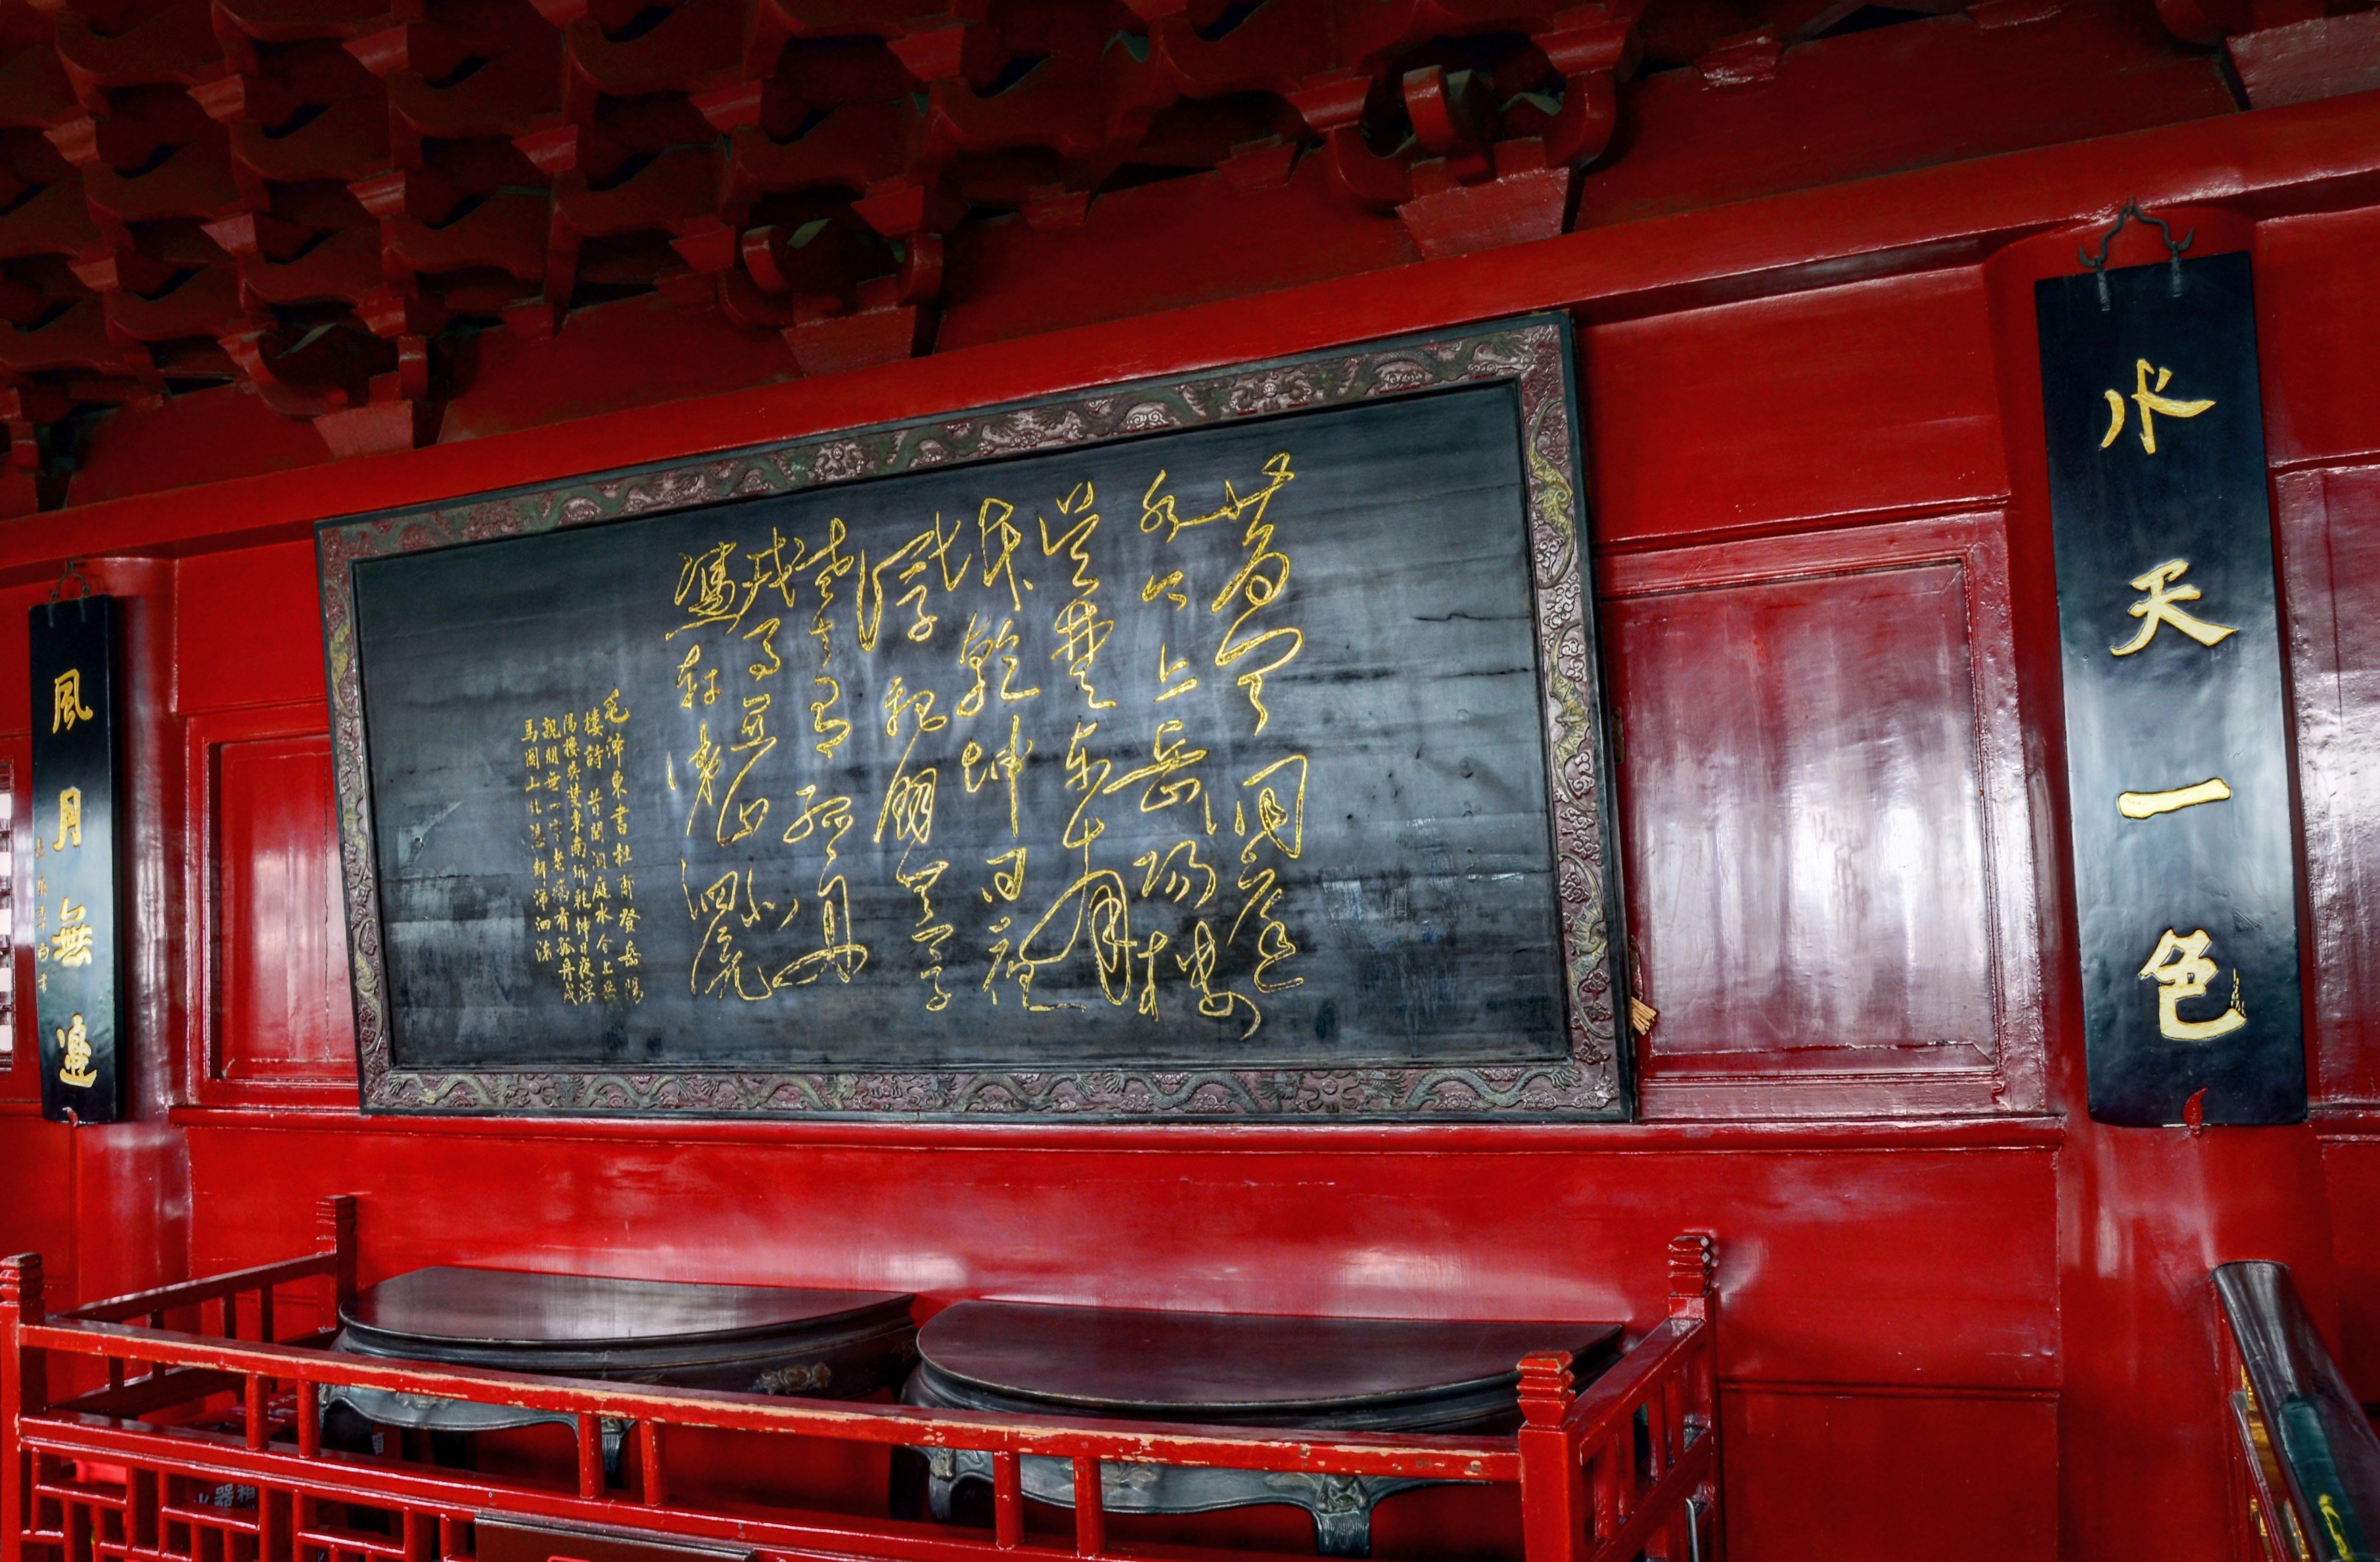 水天一色
昔聞洞庭
水今上岳陽樓
吳楚東南
坼乾坤日夜
浮親朋無一字
老去有孤舟
戎馬關山北
憑軒涕泗流
毛澤東書杜甫登岳陽
樓詩 昔聞洞庭水今上岳
陽樓吳楚東南坼乾坤日夜浮
親朋無一字老病有孤舟戎
馬關山北憑軒涕泗流
風月無邊
長庚李白書
火器箱